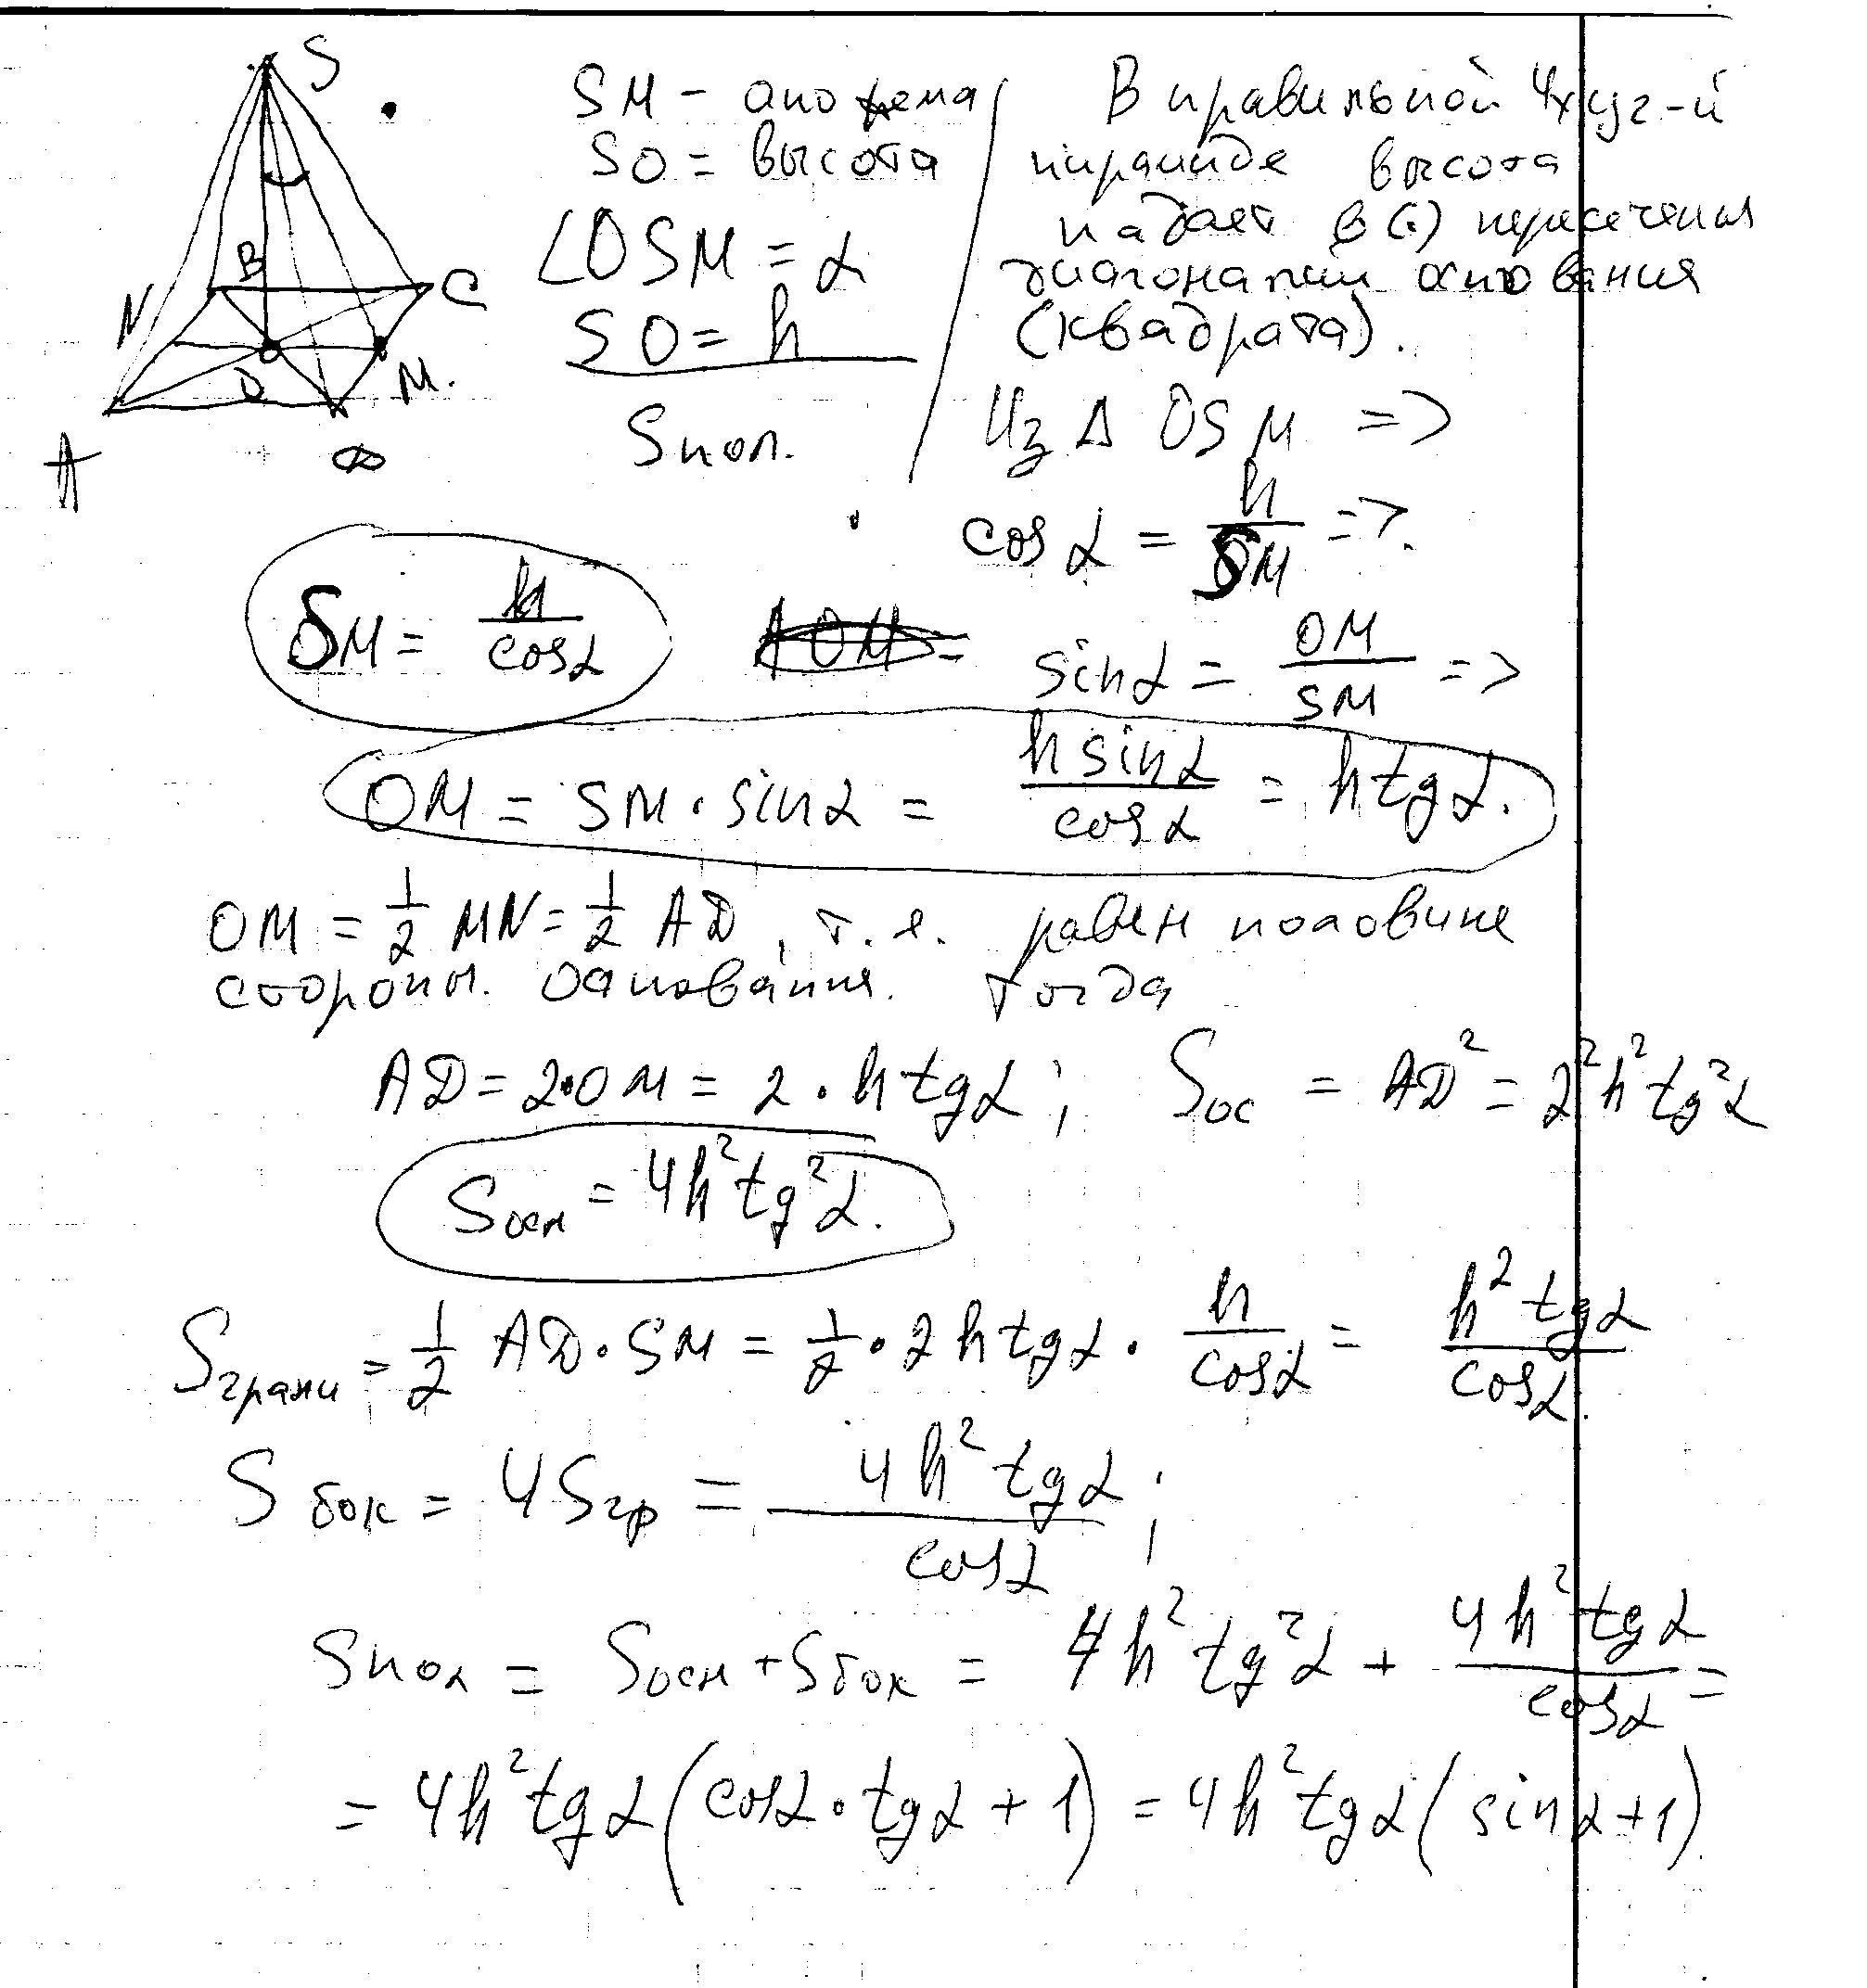 S
B
C
N
O
M.
A
D
SM - апофема
SO = высота
∠OSM = α
SO = h
Sпол.
В правильной 4хуг-й
пирамиде высота
падает в (.) пересечения
диагоналей основания
(квадрата).
Из Δ OSM =>
cos α = h/SM =>.
SM = h/cosα
sinα = OM/SM =>
OM = SM · sinα = h sinα/cosα = h tgα.
OM = 1/2 MN = 1/2 AD, т.е. равен половине
стороны. основания. Тогда
AD = 2·OM = 2 · h tgα ; Sос = AD² = 2²h²tg²α
Sосн = 4h²tg²α.
Sграни = 1/2 AD · SM = 1/2 · 2 h tgα · h/cosα = h² tgα/cosα.
Sбок = 4Sгр = 4h² tgα/cosα ;
Sпол = Sосн + Sбок = 4h² tg²α + 4h² tgα/cosα =
= 4h² tgα (cosα · tgα + 1) = 4h² tgα (sinα + 1)